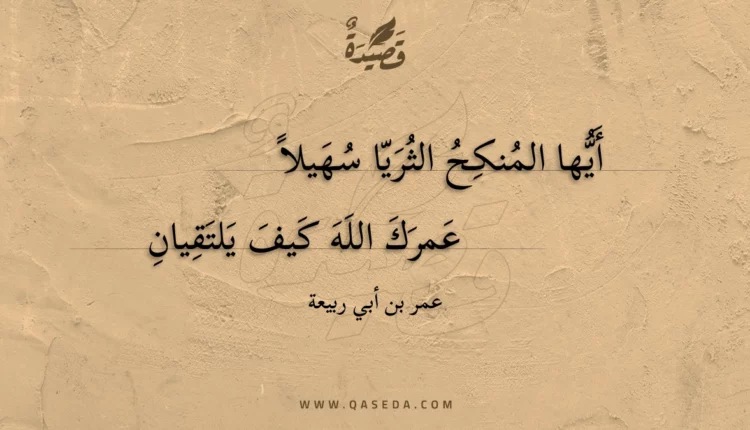 قَصِيدَةٌ
أَيُّها المُنكِحُ الثُرَيّا سُهَيلاً
عَمرَكَ اللَهَ كَيفَ يَلتَقِيانِ
عمر بن أبي ربيعة
WWW.QASEDA.COM